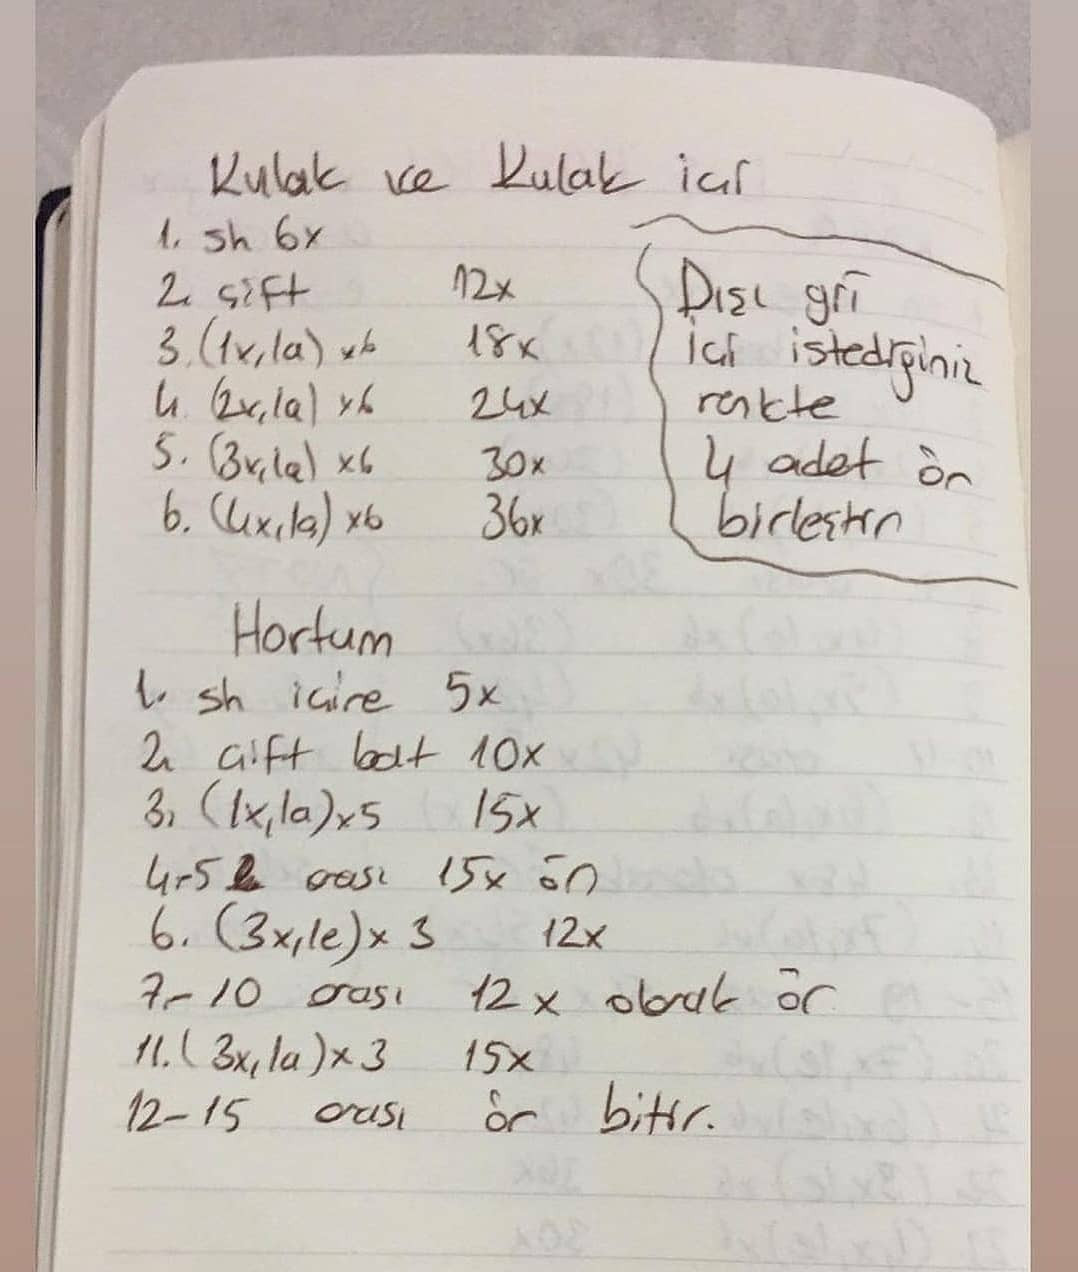 Kulak ve Kulak içi
1. sh 6x
2. çift 12x
3. (1x,1a) x6 18x
4. (2x,1a) x6 24x
5. (3x,1a) x6 30x
6. (4x,1a) x6 36x
Dışı gri
içi istediğiniz
renkte
4 adet ör
birleştir
Hortum
1. sh içine 5x
2. çift bat 10x
3. (1x,1a)x5 15x
4-5 arası 15x ör
6. (3x,1e)x 3 12x
7-10 arası 12x olarak ör
11. (3x,1a)x3 15x
12-15 arası ör bitir.